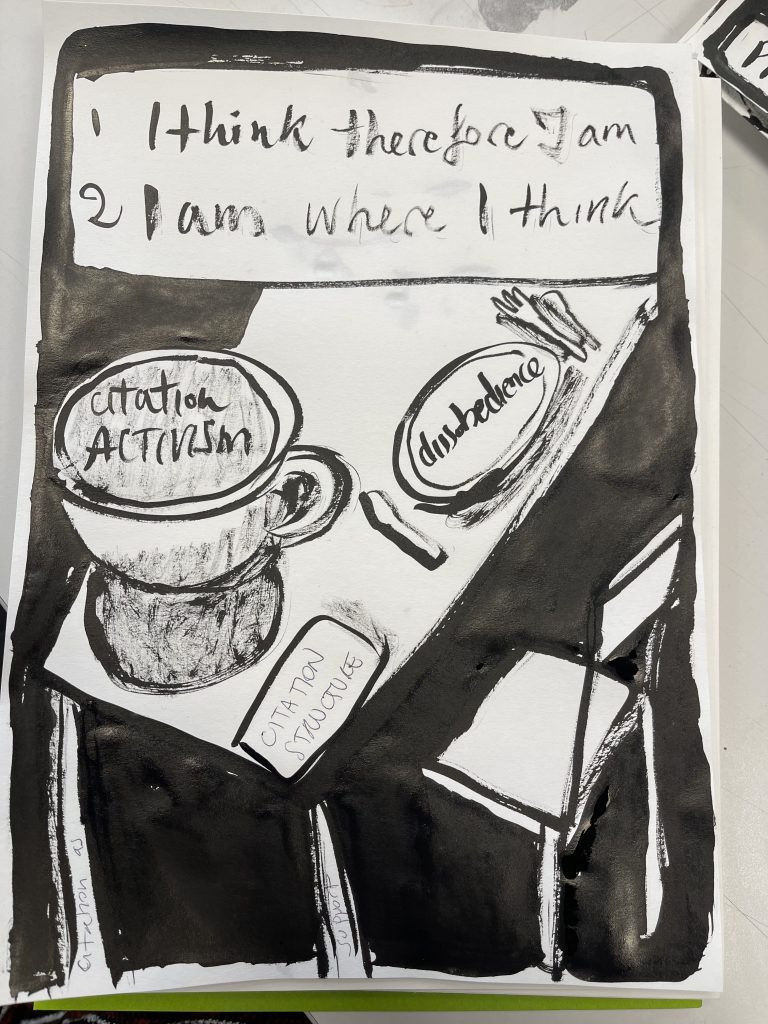 1 I think therefore I am
2 I am where I think
citation
ACTIVISM
dissobedience
CITATION
STRUCTURE
citation as
support